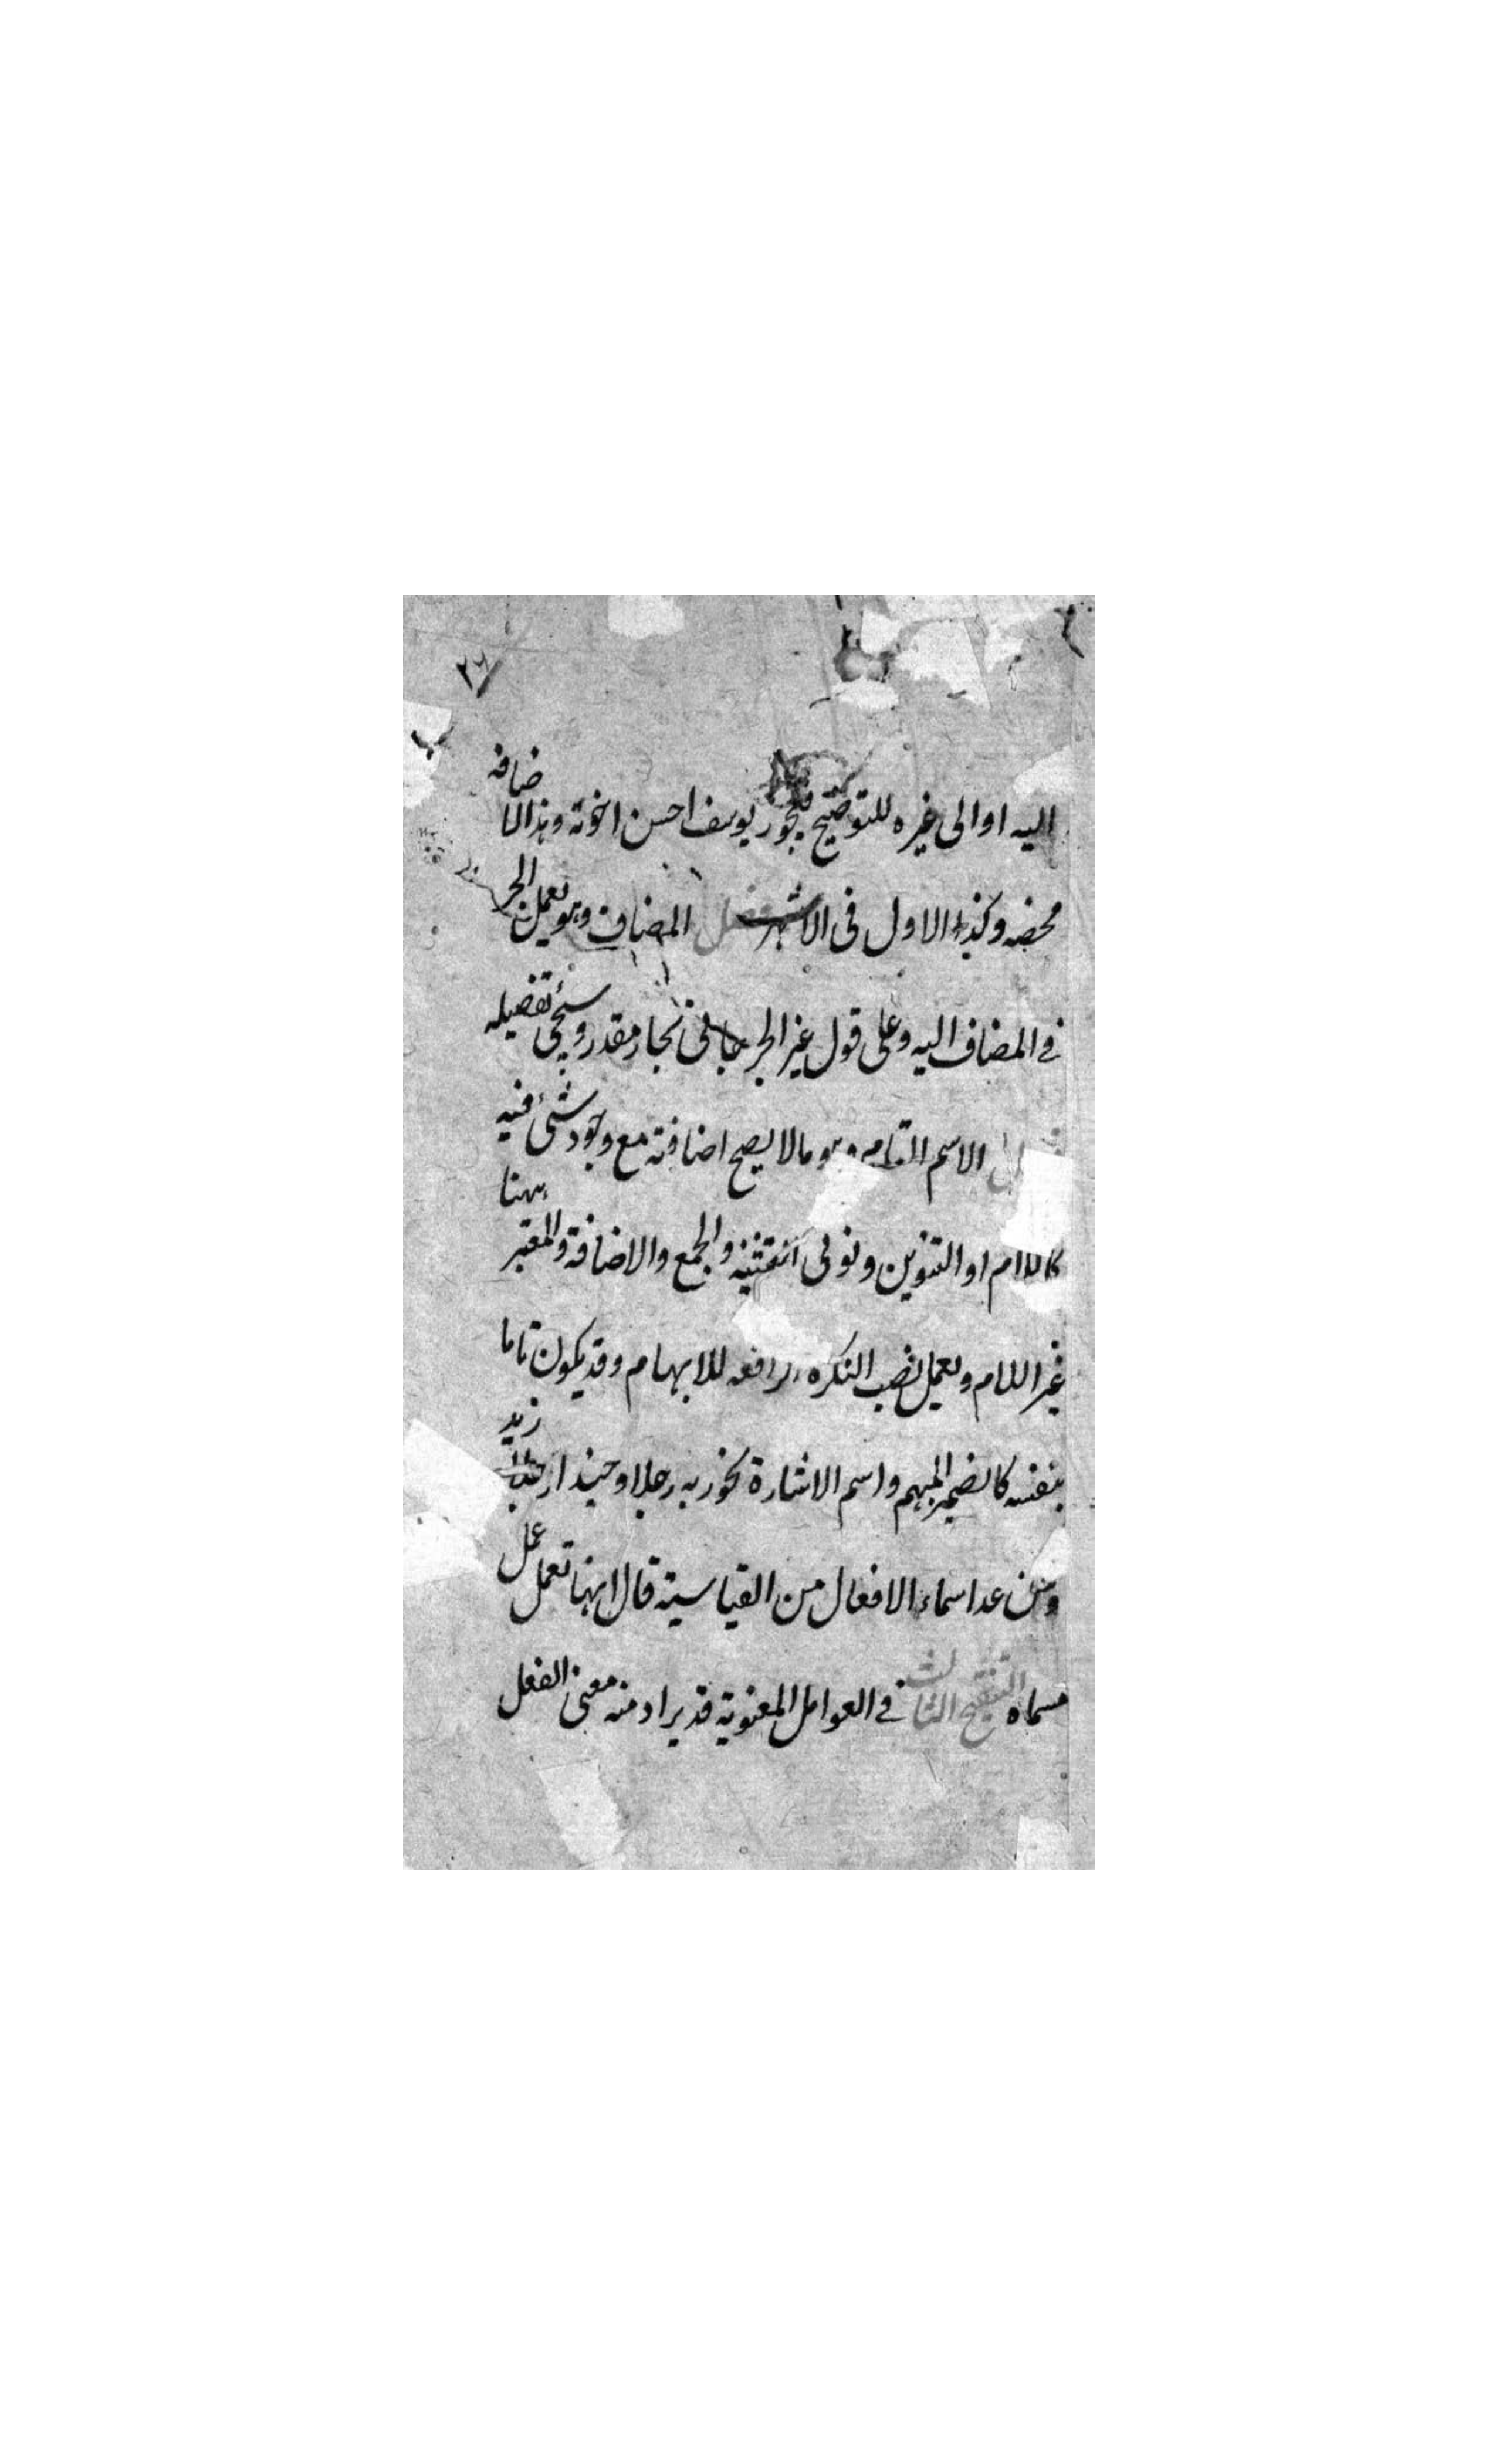 ٢٦
اليه او الى غيره للتوضيح فيجوز يوسف احسن اخوته وهذا الاضافه
محضه وكذا الاول فى الاشهر فصل المضاف وهو يعمل الجر
في المضاف اليه وعلى قول غير الجرجانى بجار مقدر وسيجئ تفصيله
الاسم التام وهو مالا يصح اضافته مع وجود شئ فيه
كاللام او التنوين ونونى التثنيه والجمع والاضافة والمعتبر ههنا
غير اللام ويعمل نصب النكره الرافعه للابهام وقد يكون تاما
بنفسه كالضمير المبهم واسم الاشارة نحو ربه رجلا وحبذا رجلا زيد
ومن عد اسماء الافعال من القياسية قال انها تعمل عمل
مسماه التنقيح الثالث في العوامل المعنوية قد يراد منه معنى الفعل